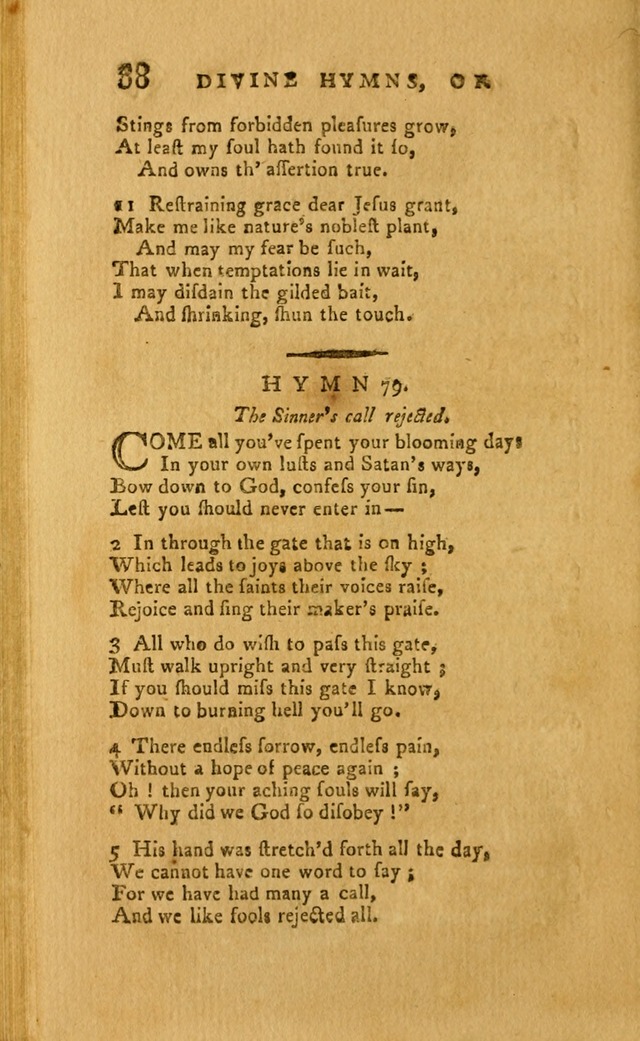 88 DIVINE HYMNS, OR
Stings from forbidden pleaſures grow,
At leaſt my ſoul hath found it ſo,
And owns th' aſſertion true.
11 Reſtraining grace dear Jeſus grant,
Make me like nature's nobleſt plant,
And may my fear be ſuch,
That when temptations lie in wait,
I may diſdain the gilded bait,
And ſhrinking, ſhun the touch.
HYMN 79.
The Sinner's call rejected.
COME all you've ſpent your blooming days
In your own luſts and Satan's ways,
Bow down to God, confeſs your ſin,
Leſt you ſhould never enter in—
2 In through the gate that is on high,
Which leads to joys above the ſky ;
Where all the ſaints their voices raiſe,
Rejoice and ſing their maker's praiſe.
3 All who do wiſh to paſs this gate,
Muſt walk upright and very ſtraight ;
If you ſhould miſs this gate I know,
Down to burning hell you'll go.
4 There endleſs ſorrow, endleſs pain,
Without a hope of peace again ;
Oh ! then your aching ſouls will ſay,
“ Why did we God ſo diſobey !”
5 His hand was ſtretch'd forth all the day,
We cannot have one word to ſay ;
For we have had many a call,
And we like fools rejected all.